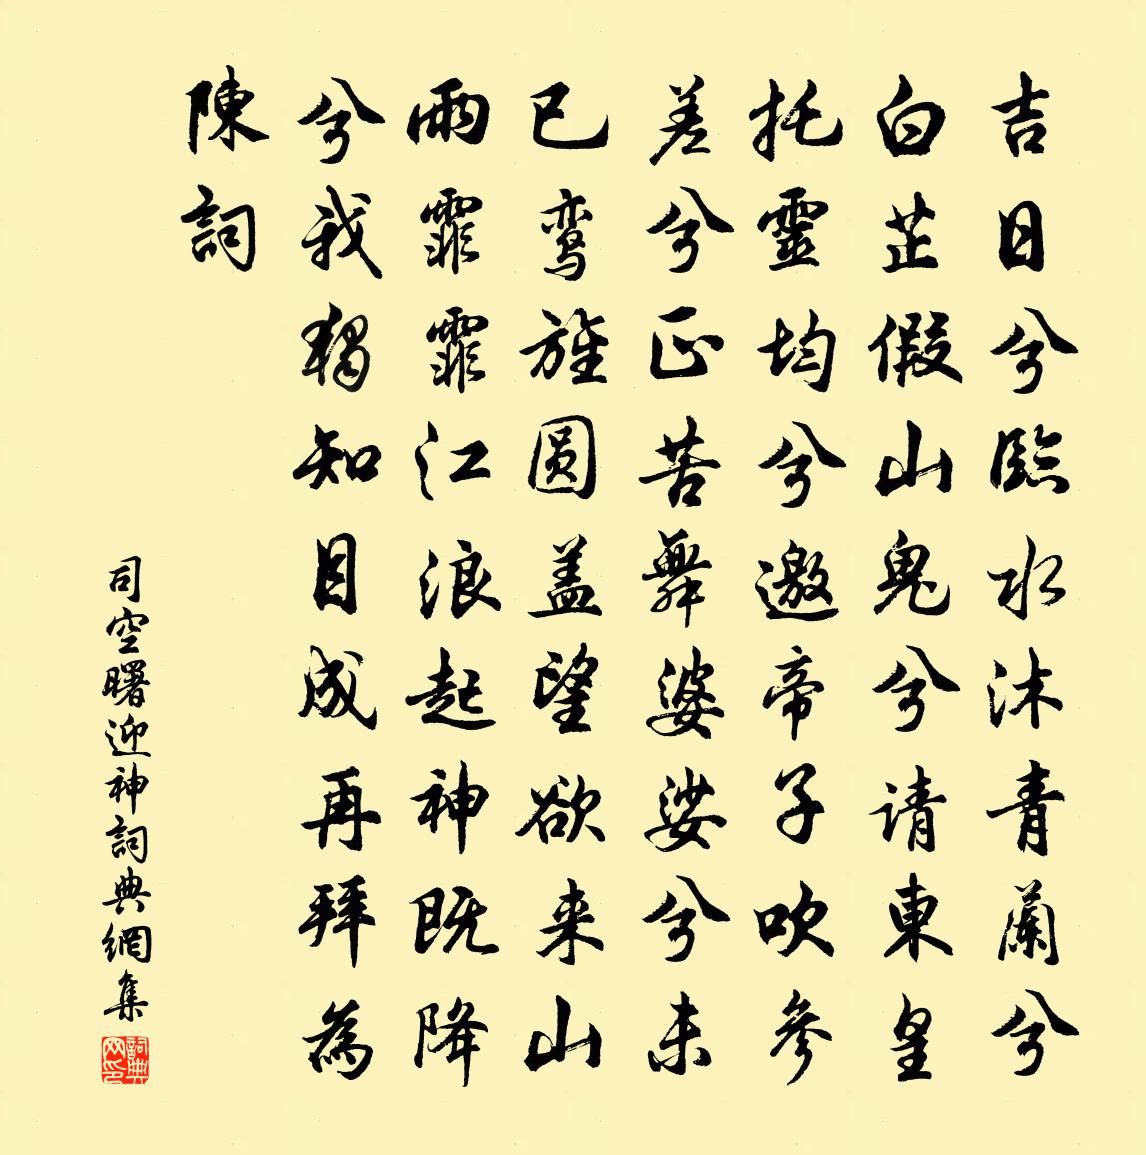 吉日兮臨水沐青蘭兮
白芷假山鬼兮请東皇
托靈均兮邀帝子吹參
差兮正苦舞婆娑兮未
已鸾旌圆盖望欲来山
雨霏霏江浪起神既降
兮我獨知目成再拜為
陳詞
司空曙迎神詞典網集
詞典
网印